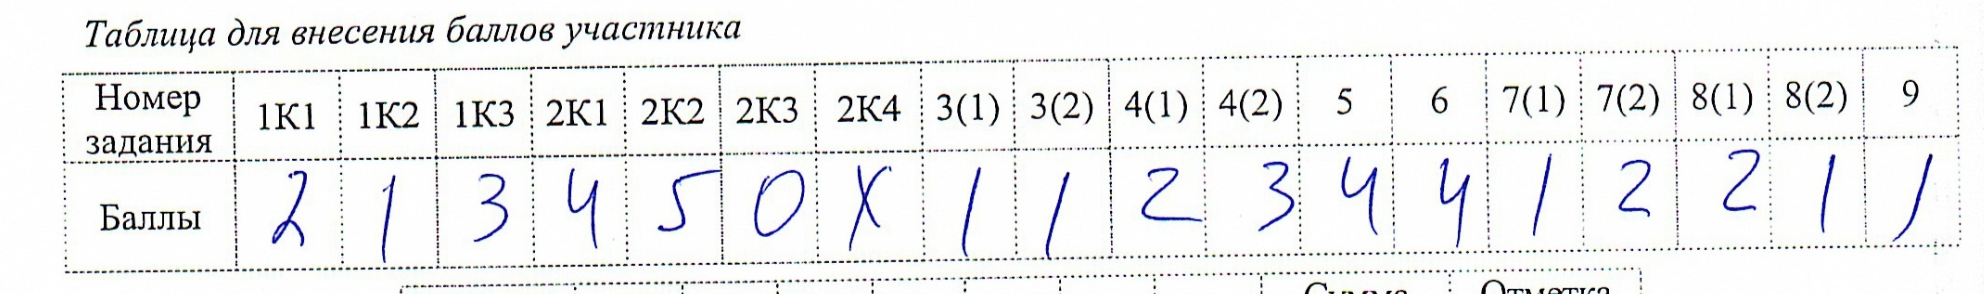 Таблица для внесения баллов участника
Номер задания 1К1 1К2 1К3 2К1 2К2 2К3 2К4 3(1) 3(2) 4(1) 4(2) 5 6 7(1) 7(2) 8(1) 8(2) 9
Баллы 2 1 3 4 5 0 X 1 1 2 3 4 4 1 2 2 1 1
Сумма Отметка